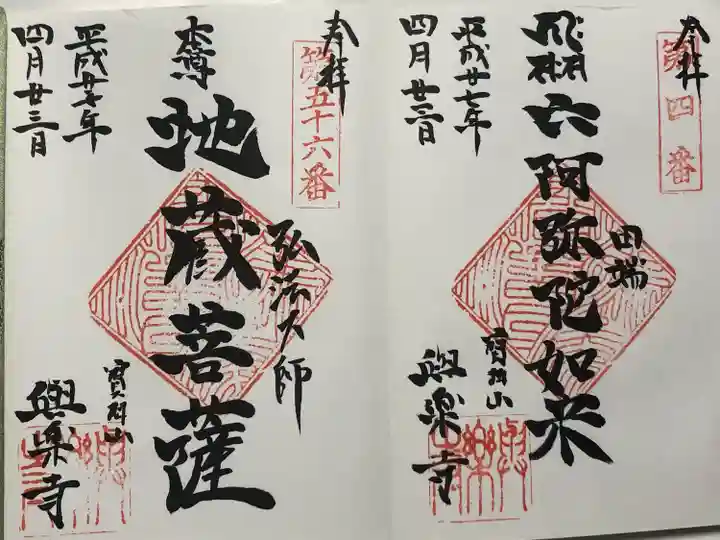 奉拝
第四番
武州六阿弥陀如来
田端
寳珠山
與楽寺
平成廿七年
四月廿三日
奉拝
第五十六番
本尊
地蔵菩薩
弘法大師
寳珠山
與楽寺
平成廿七年
四月廿三日